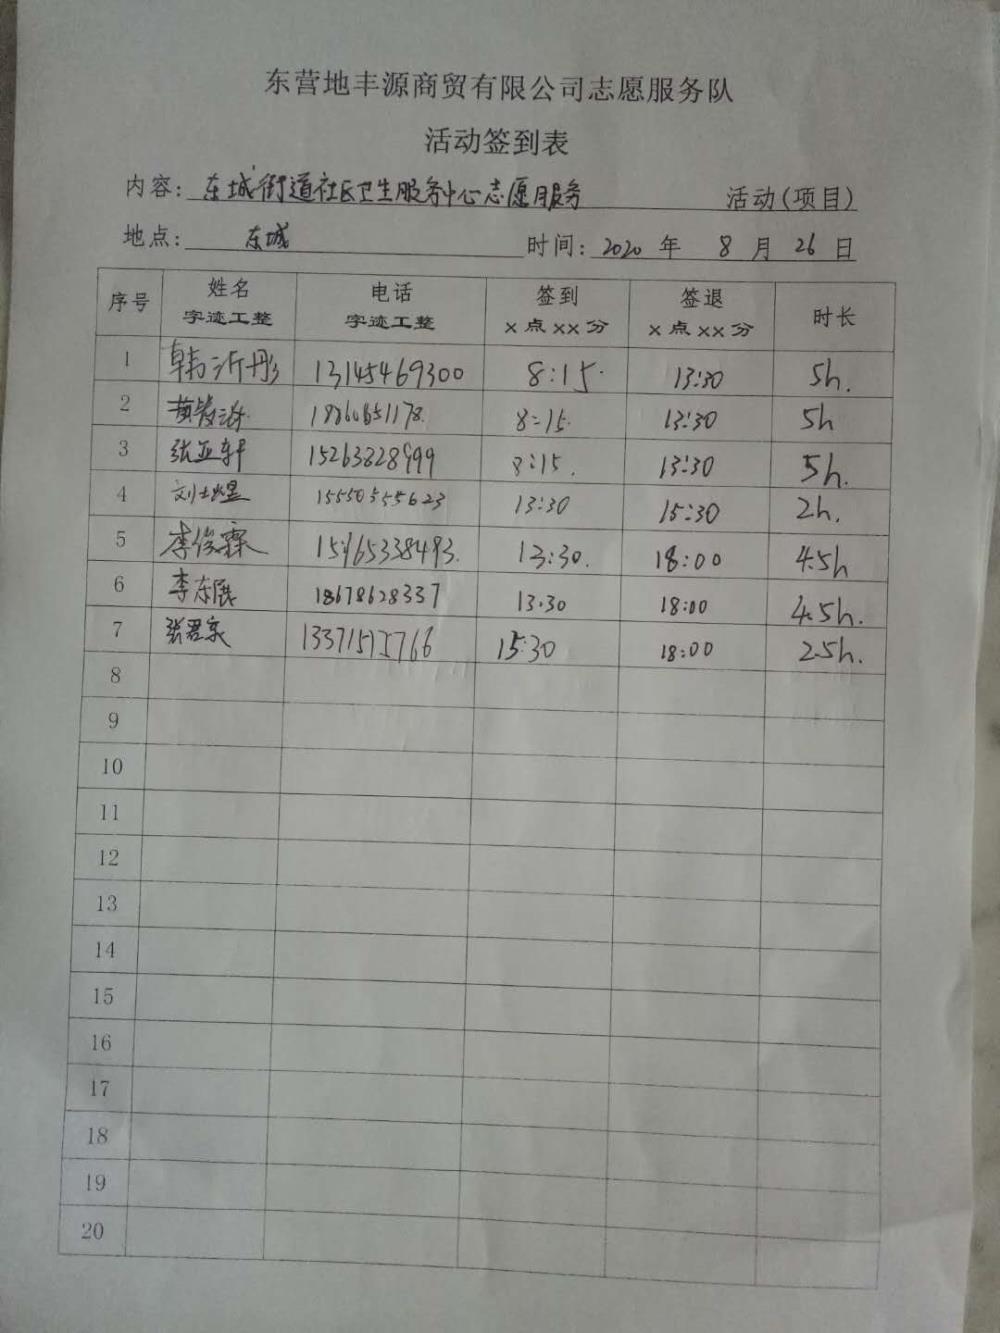 东营地丰源商贸有限公司志愿服务队
活动签到表
内容: 东城街道社区卫生服务中心志愿服务 活动(项目)
地点: 东城 时间: 2020 年 8 月 26 日
序号 姓名 字迹工整 电话 字迹工整 签到 x点xx分 签退 x点xx分 时长
1 韩沂彤 13145469300 8:15. 13:30 5h.
2 8:15. 13:30 5h
3 张亚轩 15263828999 8:15. 13:30 5h.
4 刘士煜 15550555623 13:30 15:30 2h.
5 李俊霖 15965338493. 13:30. 18:00 4.5h
6 李东展 18678628337 13.30 18:00 4.5h.
7 张君豪 15:30 18:00 2.5h.
8
9
10
11
12
13
14
15
16
17
18
19
20